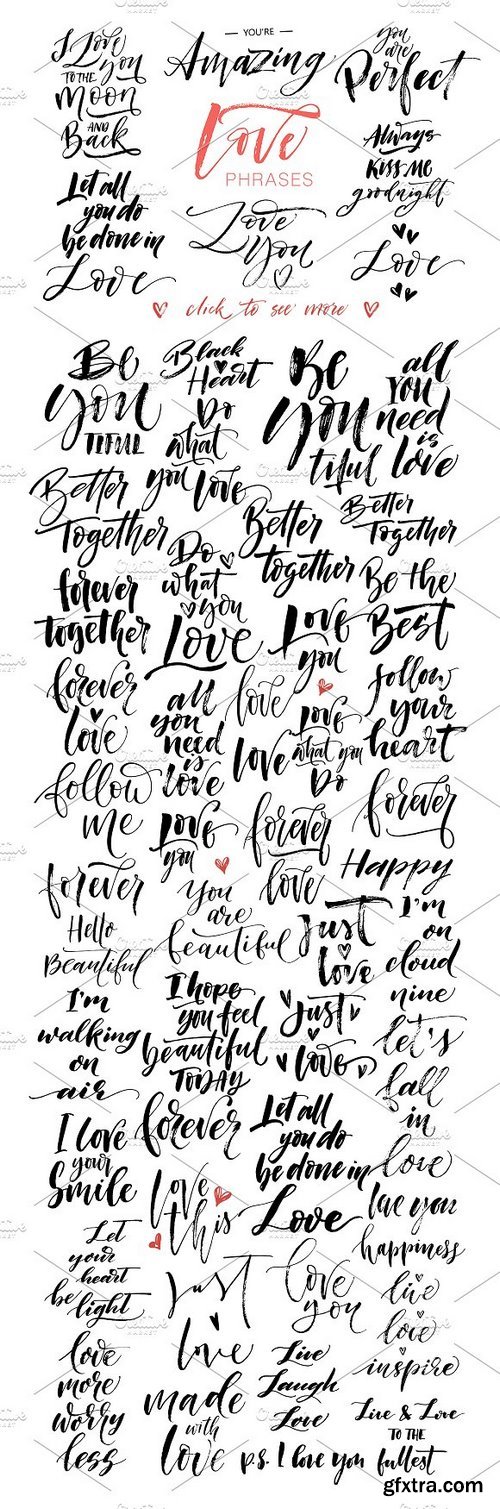 I Love
you
TO THE
Moon
AND
Back
— YOU'RE —
Amazing
you
are
Perfect
Love
PHRASES
Always
KISS ME
goodnight
Let all
you do
be done in
Love
Love
You
Love
click to see more
Be
you
TIFUL
Black
Heart
Do
what
you love
Be
you
tiful
all
YOU
need
is
love
Better
Together
Better
together
Better
Together
forever
together
Do
what
you
Love
Love
you
Be the
Best
forever
love
all
you
need
is
love
love
love
Love
what you
Do
follow
your
heart
follow
me
Love
you
forever
love
forever
forever
You
are
beautiful
Happy
Hello
Beautiful
Just
love
I'm
on
cloud
nine
I'm
walking
on
air
I hope
you feel
beautiful
TODAY
Just
love
let's
fall
in
love
I love
your
Smile
forever
Let all
you do
be done in
Love
love
this
love you
happiness
Let
your
heart
be
light
Just
love
love
you
live
love
inspire
love
more
worry
less
made
with
love
Live
Laugh
Love
Live & Love
TO THE
fullest
p.s. I love you
gfxtra.com